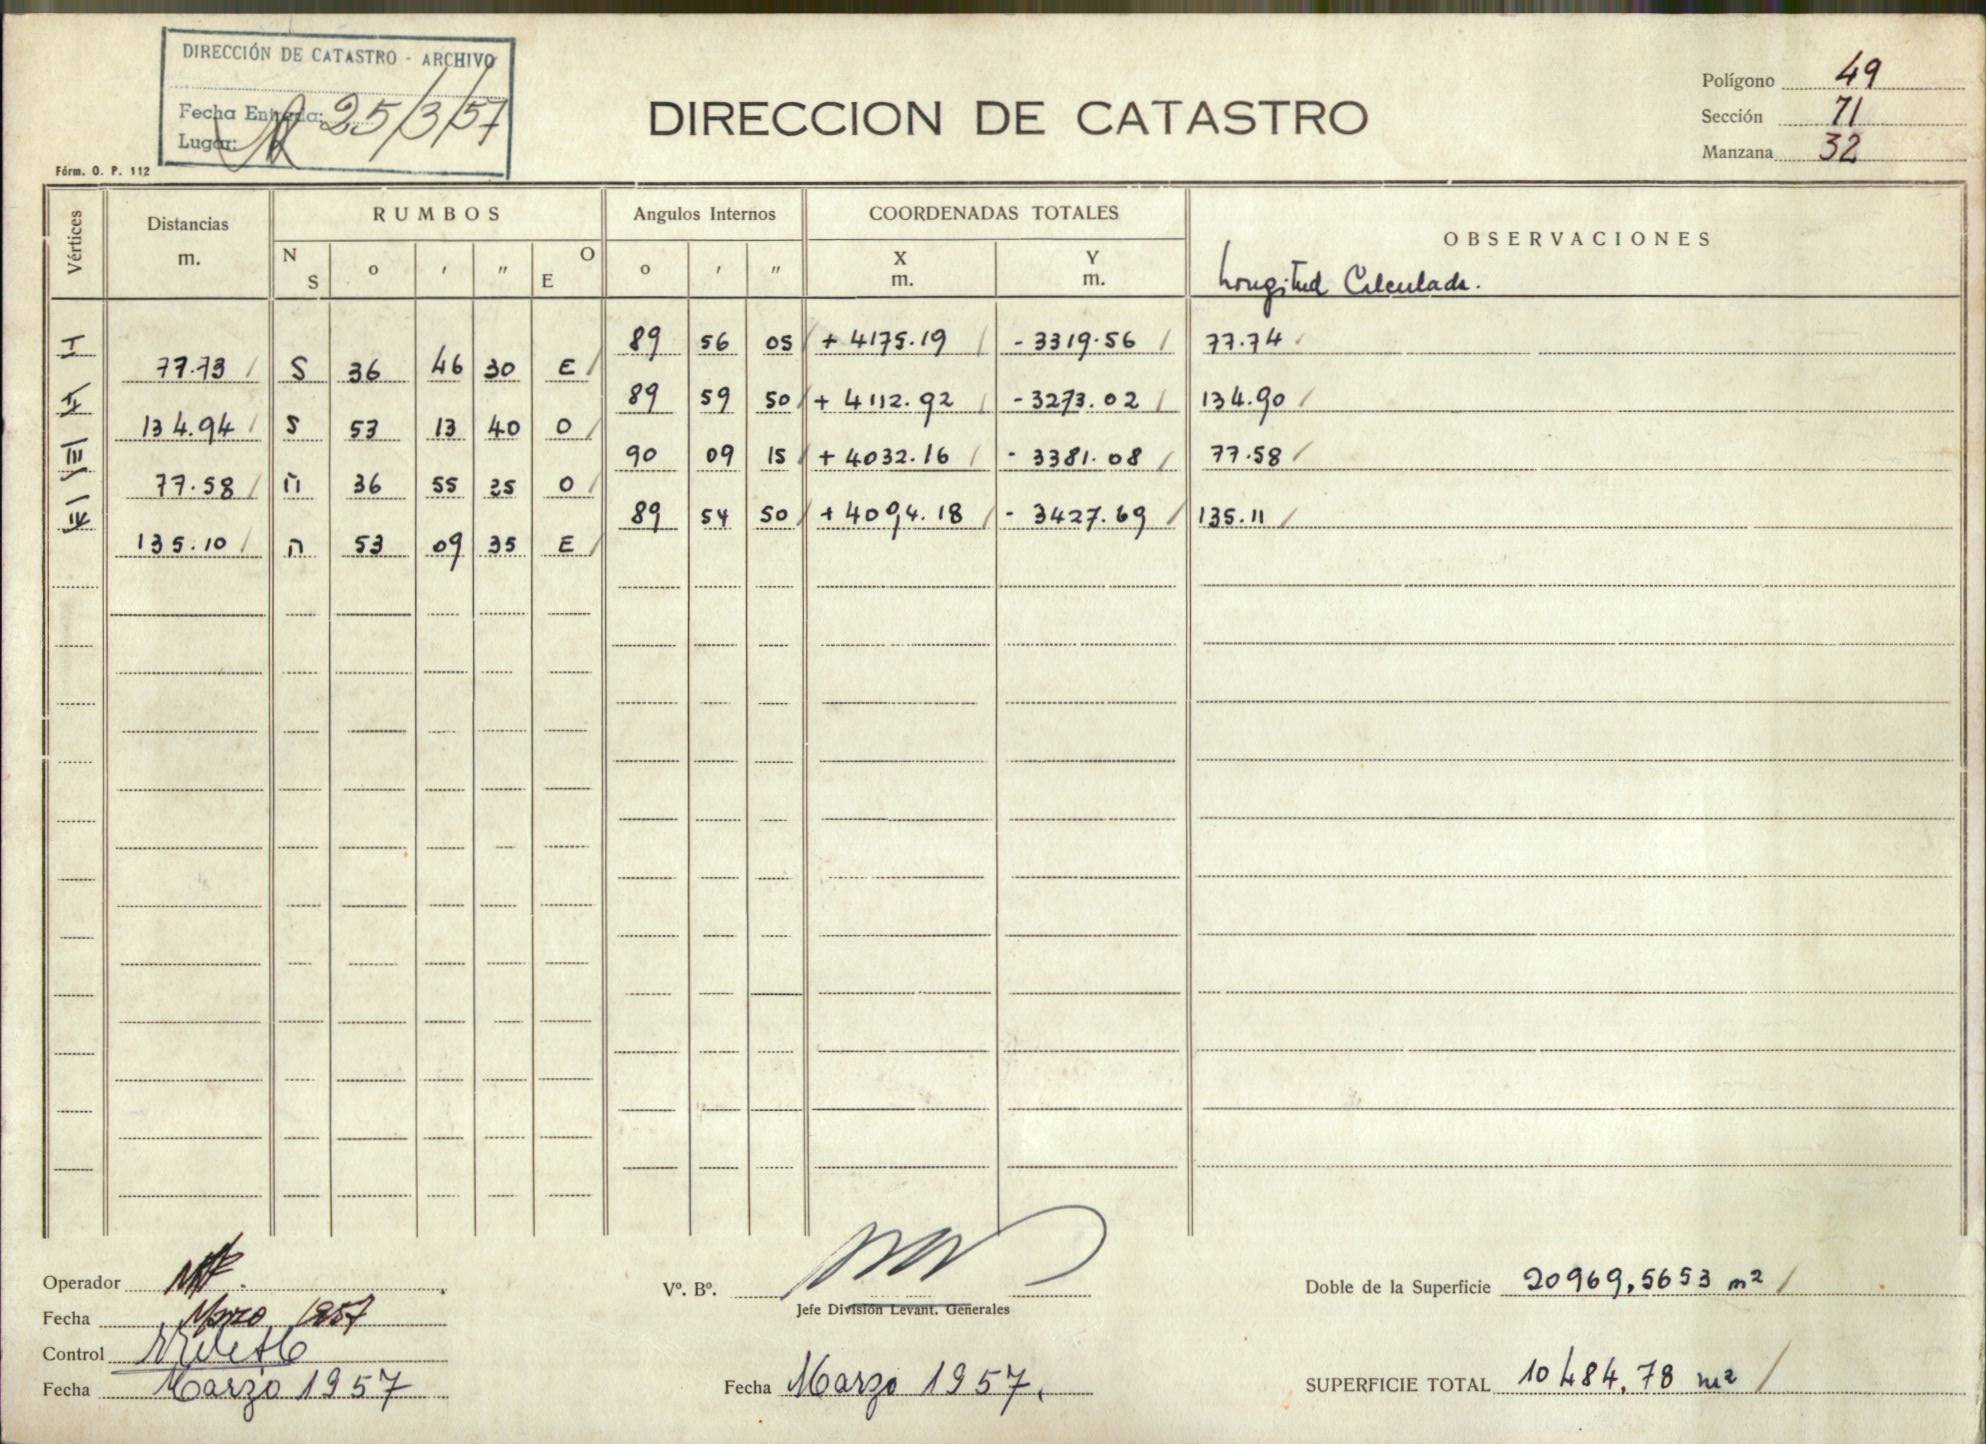 DIRECCIÓN DE CATASTRO - ARCHIVO
Fecha Entrada: 25/3/57
Lugar:
Fórm. O. P. 112
DIRECCION DE CATASTRO
Polígono 49
Sección 71
Manzana 32
Vértices Distancias m. RUMBOS Angulos Internos COORDENADAS TOTALES OBSERVACIONES
N S o ' " O E o ' " X m. Y m. Longitud Calculada.
I 89 56 05 + 4175.19 - 3319.56 77.74
77.73 S 36 46 30 E
II 89 59 50 + 4112.92 - 3273.02 134.90
134.94 S 53 13 40 O
III 90 09 15 + 4032.16 - 3381.08 77.58
77.58 N 36 55 25 O
IV 89 54 50 + 4094.18 - 3427.69 135.11
135.10 N 53 09 35 E
Operador
Fecha Marzo 1957
Control
Fecha Marzo 1957
Vº. Bº.
Jefe División Levant. Generales
Fecha Marzo 1957.
Doble de la Superficie 20969,5653 m²
SUPERFICIE TOTAL 10484,78 m²